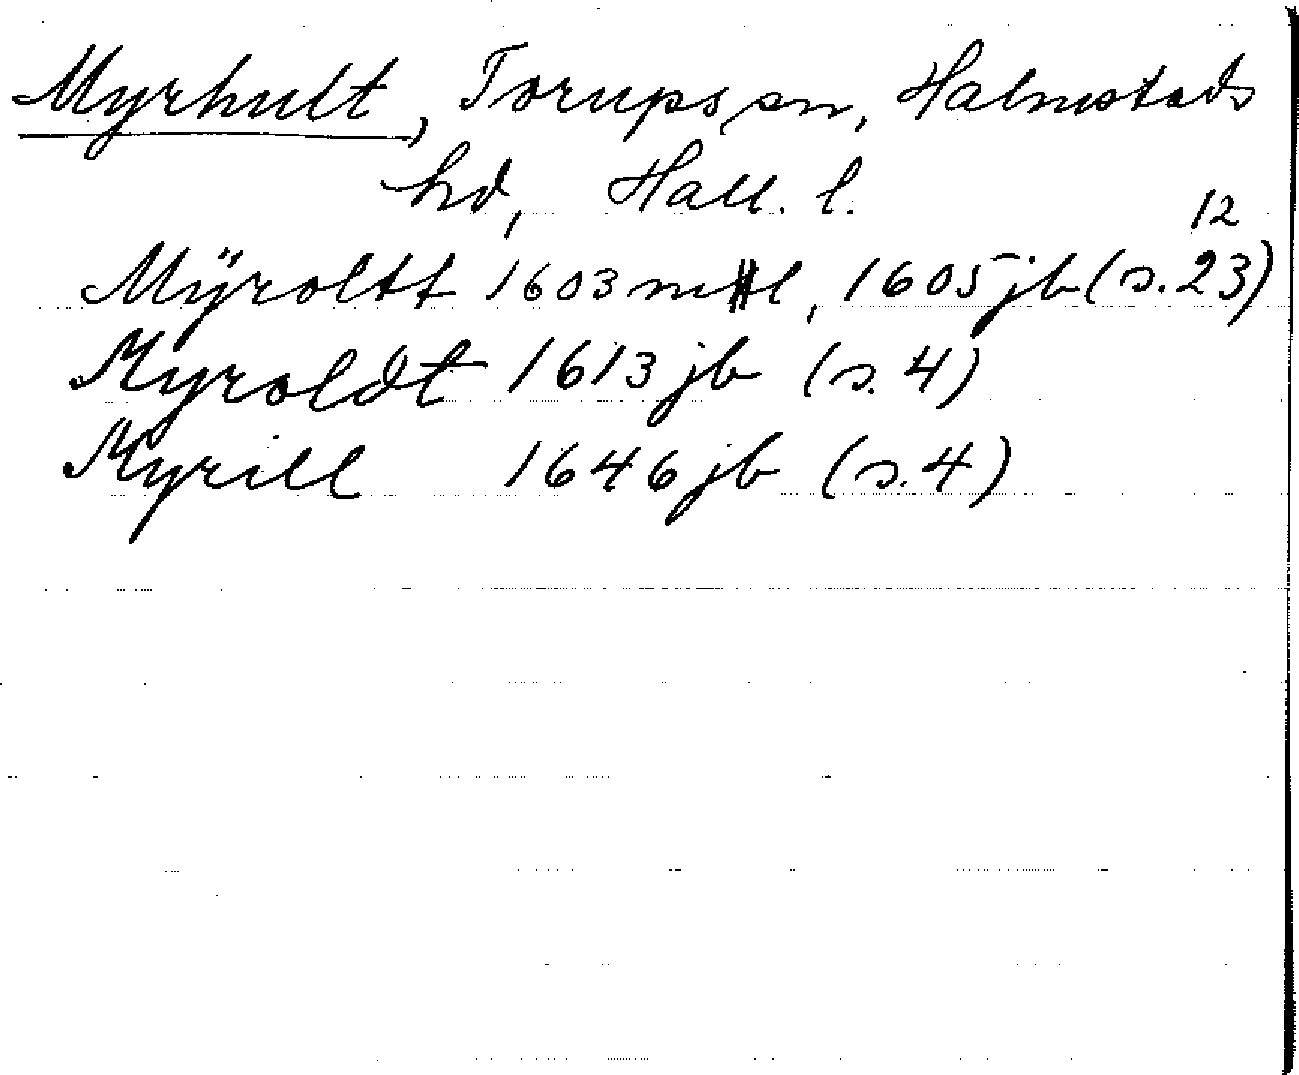 Myrhult, Torups sn, Halmstads
hd, Hall. l.
12
Mÿroltt 1603 mtl, 1605 jb (s. 23)
Myroldt 1613 jb (s. 4)
Myrill 1646 jb (s. 4)